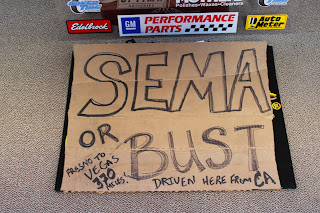 Polishes•Waxes•Cleaners
Edelbrock
GM
PERFORMANCE
PARTS
Auto
Meter
SEMA
OR
BUST
FRESNO TO
VEGAS
370
MILES!
DRIVEN HERE FROM CA